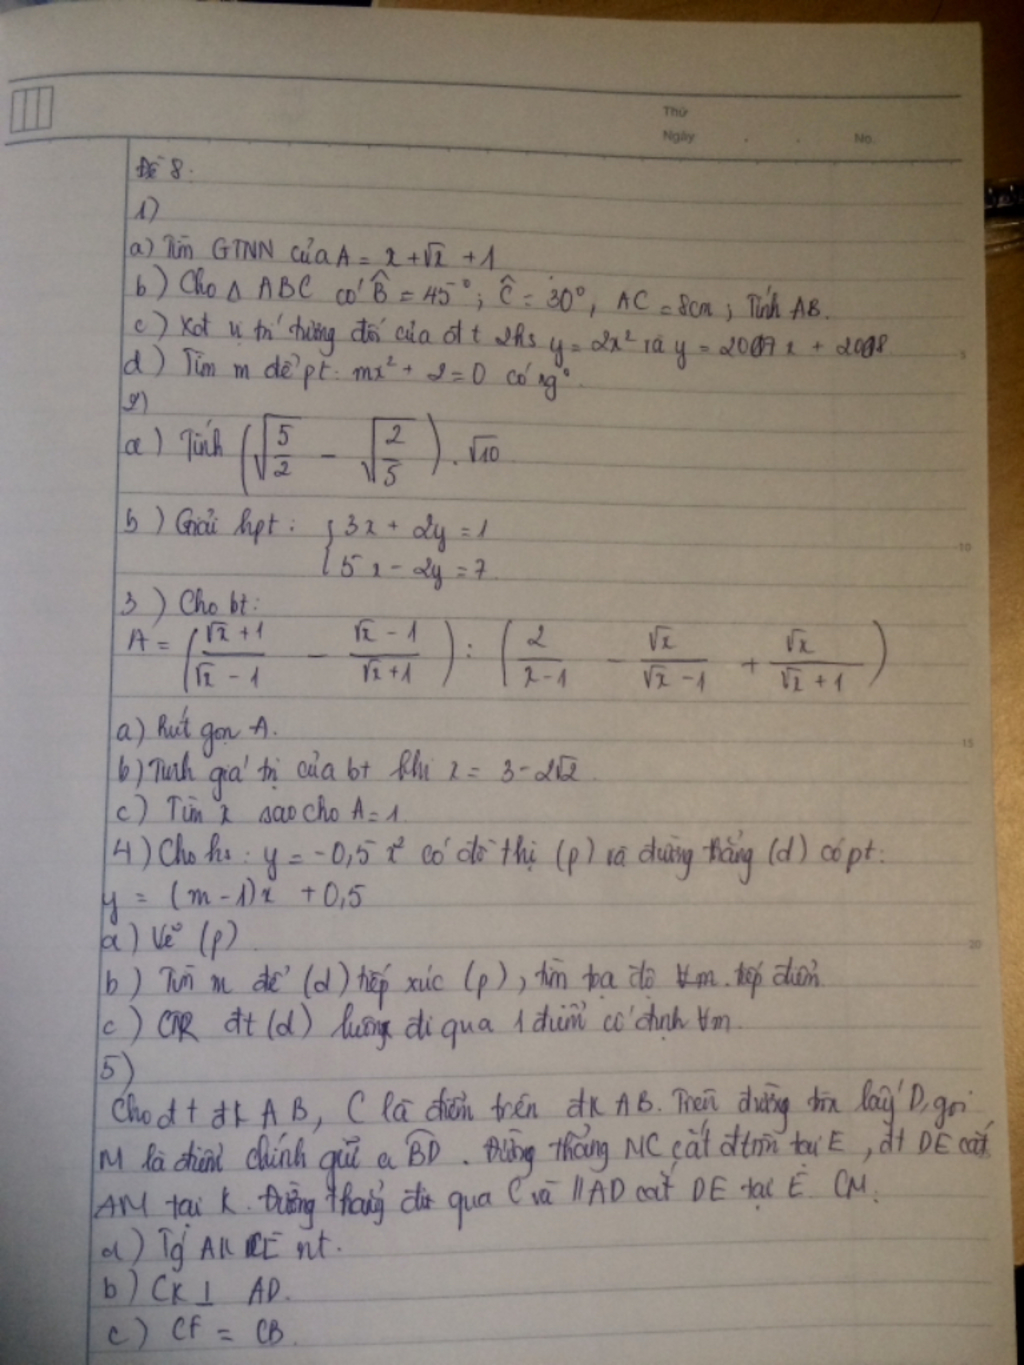 Thứ
Ngày . . No.
Đề 8.
1)
a) Tìm GTNN của A = x + √x + 1
b) Cho Δ ABC có B̂ = 45°; Ĉ = 30°, AC = 8cm; Tính AB.
c) Xét vị trí tương đối của đt 2hs y = 2x² và y = 2019x + 2018
d) Tìm m để pt: mx² + 2 = 0 có ng°.
2)
a) Tính (√(5/2) - √(2/5)) . √10
b) Giải hpt: { 3x + 2y = 1
5x - 2y = 7
3) Cho bt:
A = ((√x + 1)/(√x - 1) - (√x - 1)/(√x + 1)) : (2/(x - 1) - √x/(√x - 1) + √x/(√x + 1))
a) Rút gọn A.
b) Tính giá trị của bt khi x = 3 - 2√2.
c) Tìm x sao cho A = 1.
4) Cho hs: y = -0,5x² có đồ thị (p) và đường thẳng (d) có pt:
y = (m - 1)x + 0,5
a) Vẽ (p)
b) Tìm m để (d) tiếp xúc (p), tìm tọa độ tiếp điểm
c) CMR đt (d) luông đi qua 1 điểm cố định ∀m.
5)
Cho đt đk AB, C là điểm trên đk AB. Trên đường tròn lấy D, gọi
M là điểm chính giữa BD. Đường thẳng MC cắt đtròn tại E, đt DE cắt
AM tại K. Đường thẳng qua C và // AD cắt DE tại CM:
a) Tg AKCE nt.
b) CK ⊥ AD.
c) CF = CB.